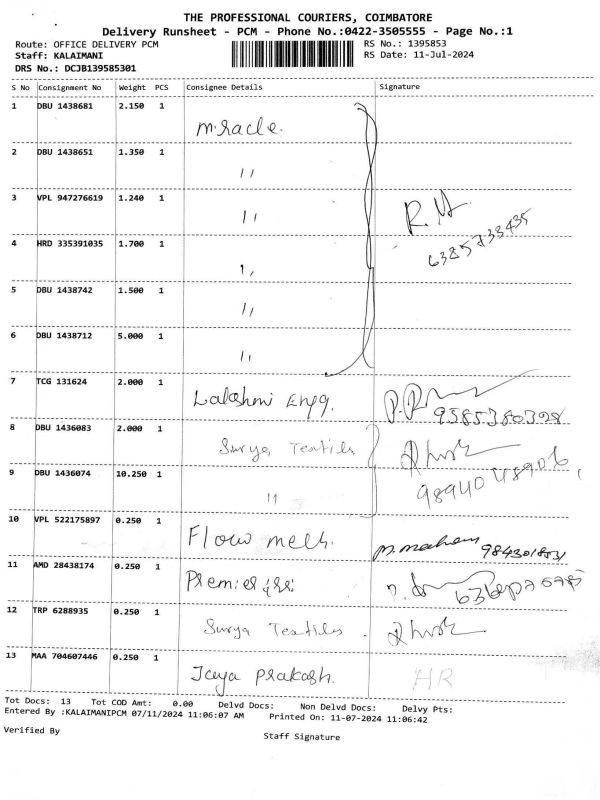 THE PROFESSIONAL COURIERS, COIMBATORE
Delivery Runsheet - PCM - Phone No.:0422-3505555 - Page No.:1
Route: OFFICE DELIVERY PCM RS No.: 1395853
Staff: KALAIMANI RS Date: 11-Jul-2024
DRS No.: DCJB139585301
S No Consignment No Weight PCS Consignee Details Signature
1 DBU 1438681 2.150 1 Miracle.
2 DBU 1438651 1.350 1 "
3 VPL 947276619 1.240 1 "
6385733435
4 HRD 335391035 1.700 1 "
5 DBU 1438742 1.500 1 "
6 DBU 1438712 5.000 1 "
7 TCG 131624 2.000 1 Lakshmi Engg.
9585380398
8 DBU 1436083 2.000 1 Surya Textiles
9 DBU 1436074 10.250 1 "
9894048906
10 VPL 522175897 0.250 1 Flow mech.
11 AMD 28438174 0.250 1 Premier
12 TRP 6288935 0.250 1 Surya Textiles.
13 MAA 704607446 0.250 1 Jaya Prakash. HR
Tot Docs: 13 Tot COD Amt: 0.00 Delvd Docs: Non Delvd Docs: Delvy Pts:
Entered By :KALAIMANIPCM 07/11/2024 11:06:07 AM Printed On: 11-07-2024 11:06:42
Verified By Staff Signature